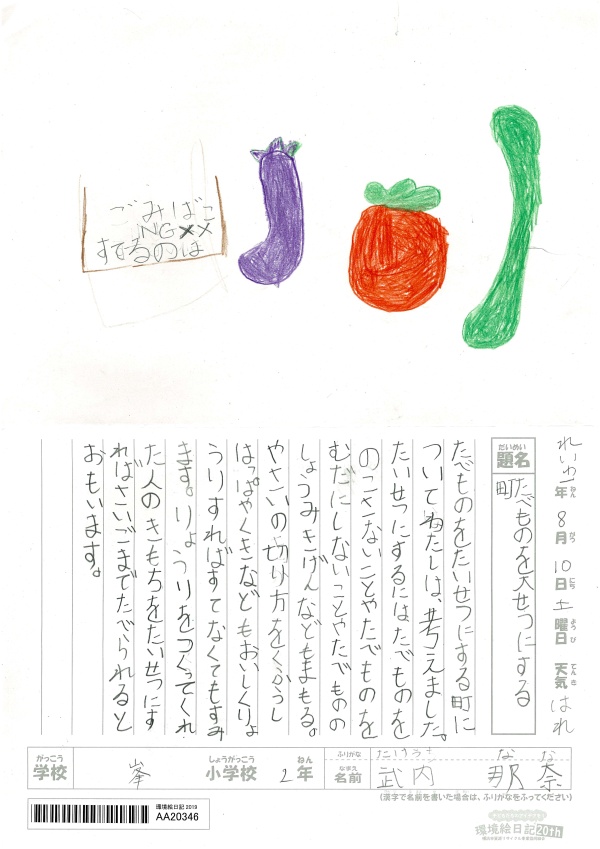 ごみばこ
NG××
すてるのは
れいわ1年8月10日土曜日 天気 はれ
ねん がつ にち ようび てんき
だいめい
題名
たべものを大せつにする
町
たべものをたいせつにする町に
ついてわたしは、考えました。
たいせつにするにはたべものを
のこさないことやたべものを
むだにしないことやたべものの
しょうみきげんなどもまもる。
やさいの切り方をくふうし
はっぱやくきなどもおいしくりょ
うりすればすてなくてもすみ
ます。りょうりをつくってくれ
た人のきもちをたいせつにす
ればさいごまでたべられると
おもいます。
がっこう しょうがっこう ねん
学校 峯 小学校 2年
ふりがな たけうち なな
なまえ
名前 武内 那奈
(漢字で名前を書いた場合は、ふりがなをふってください)
環境絵日記2019
AA20346
環境絵日記20th